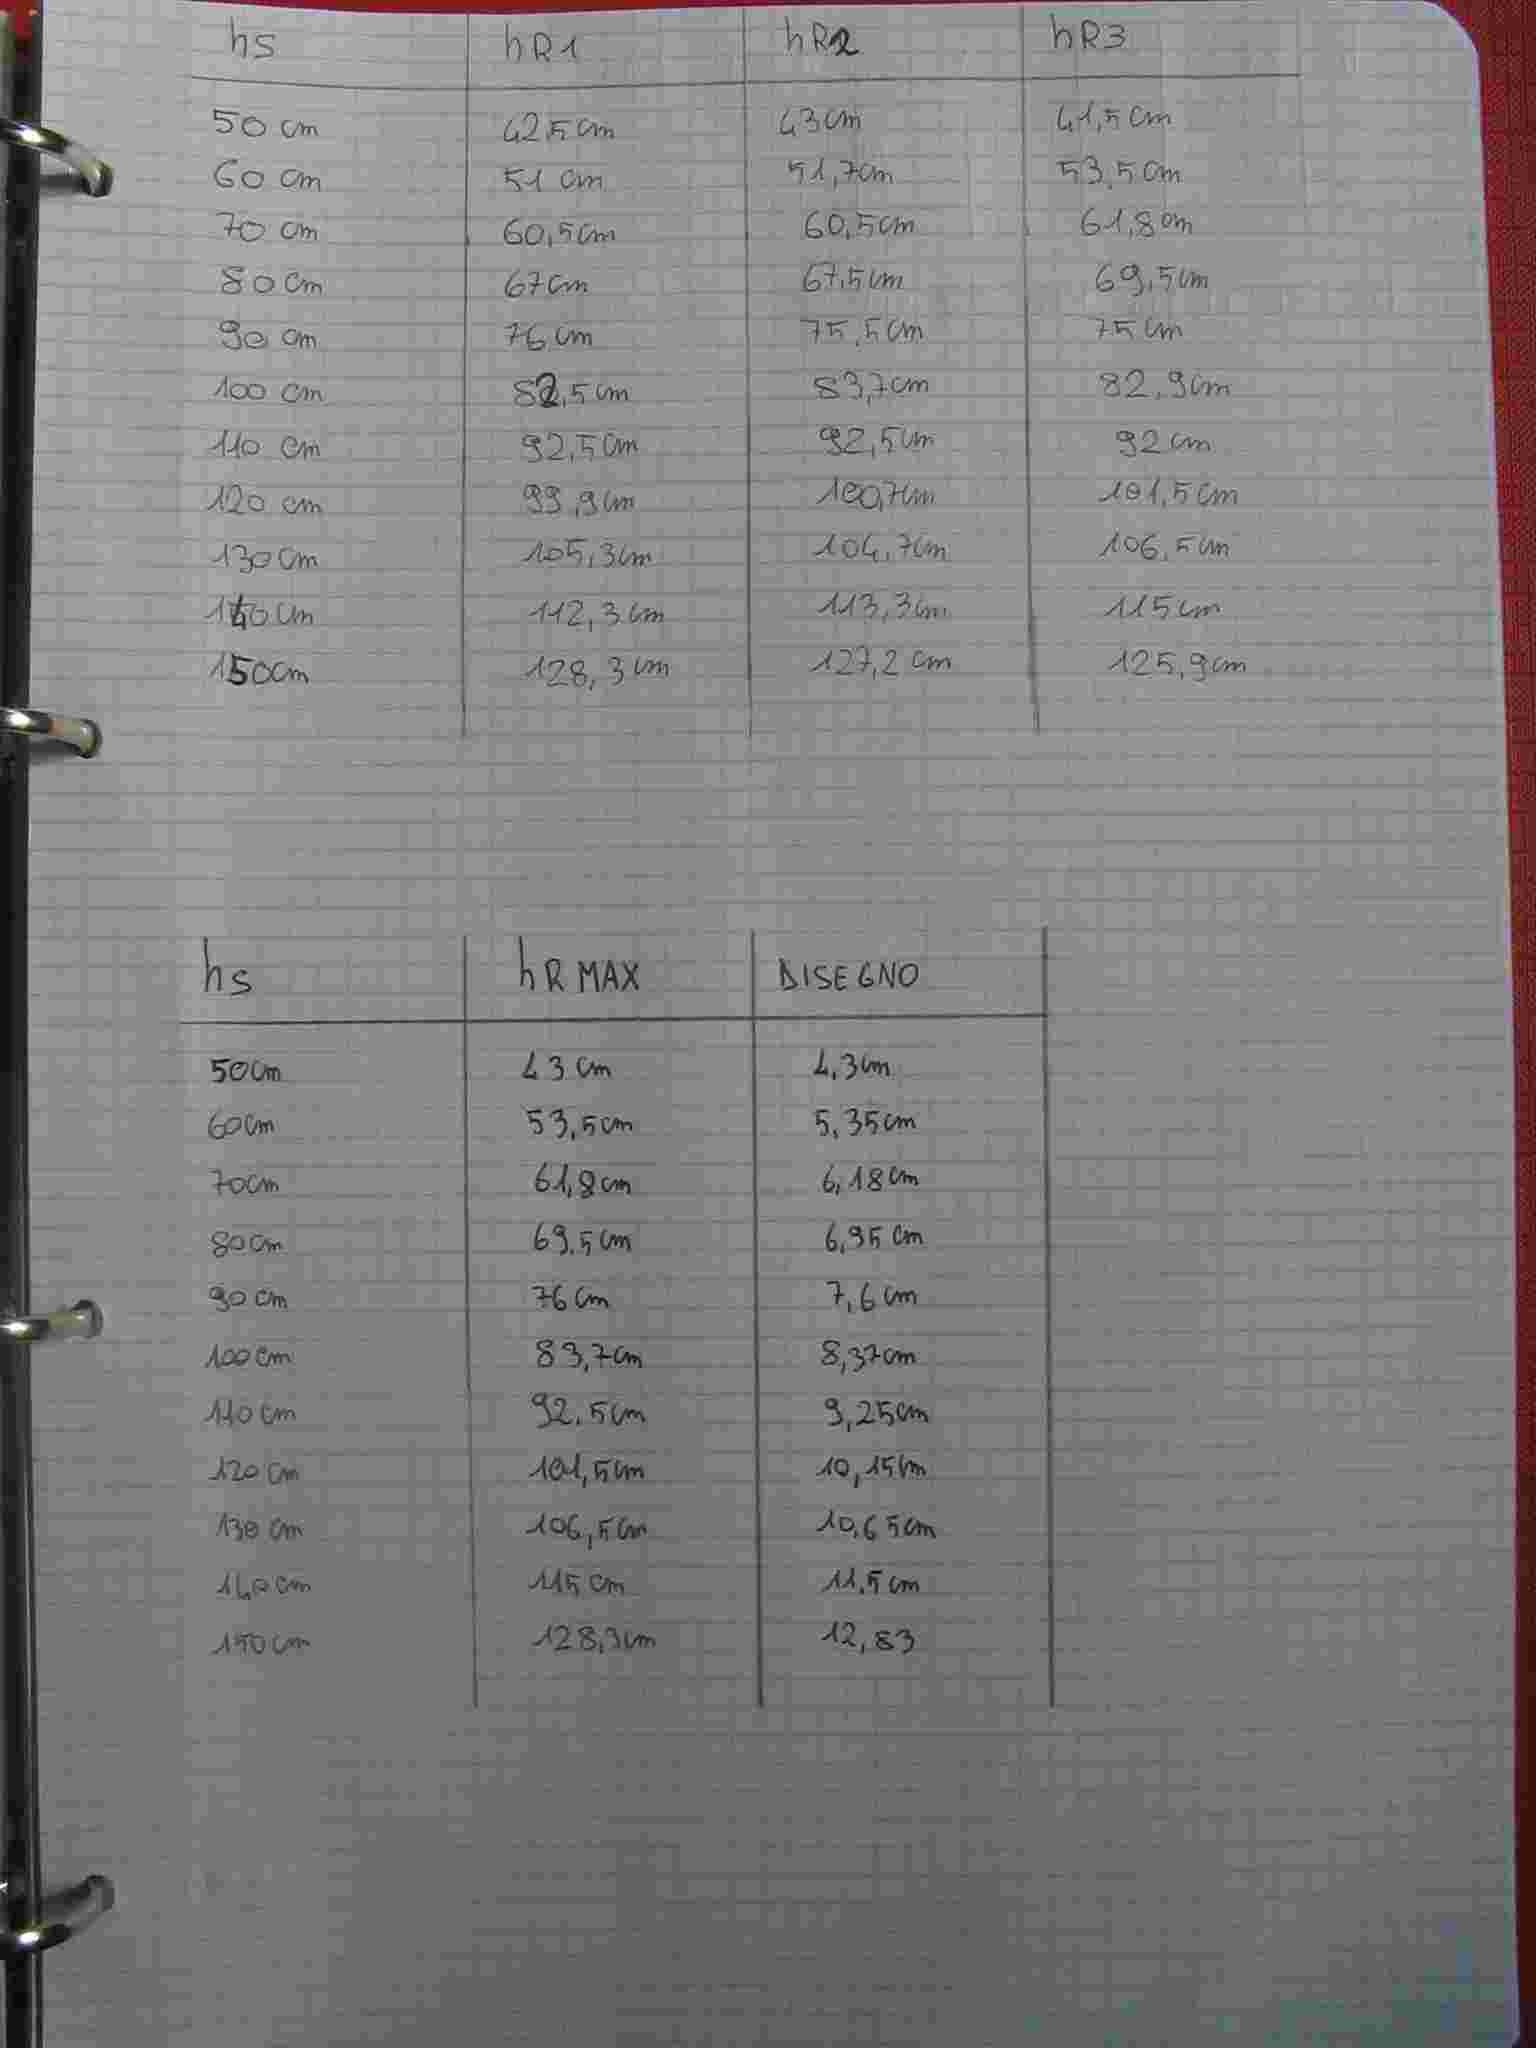 hs hR1 hR2 hR3
50 cm 42,5 cm 43 cm 41,5 cm
60 cm 51 cm 51,7 cm 53,5 cm
70 cm 60,5 cm 60,5 cm 61,8 cm
80 cm 67 cm 67,5 cm 69,5 cm
90 cm 76 cm 75,5 cm 75 cm
100 cm 82,5 cm 83,7 cm 82,9 cm
110 cm 92,5 cm 92,5 cm 92 cm
120 cm 99,9 cm 100,7 cm 101,5 cm
130 cm 105,3 cm 104,7 cm 106,5 cm
140 cm 112,3 cm 113,3 cm 115 cm
150 cm 128,3 cm 127,2 cm 125,9 cm
hs hR MAX DISEGNO
50 cm 43 cm 4,3 cm
60 cm 53,5 cm 5,35 cm
70 cm 61,8 cm 6,18 cm
80 cm 69,5 cm 6,95 cm
90 cm 76 cm 7,6 cm
100 cm 83,7 cm 8,37 cm
110 cm 92,5 cm 9,25 cm
120 cm 101,5 cm 10,15 cm
130 cm 106,5 cm 10,65 cm
140 cm 115 cm 11,5 cm
150 cm 128,3 cm 12,83